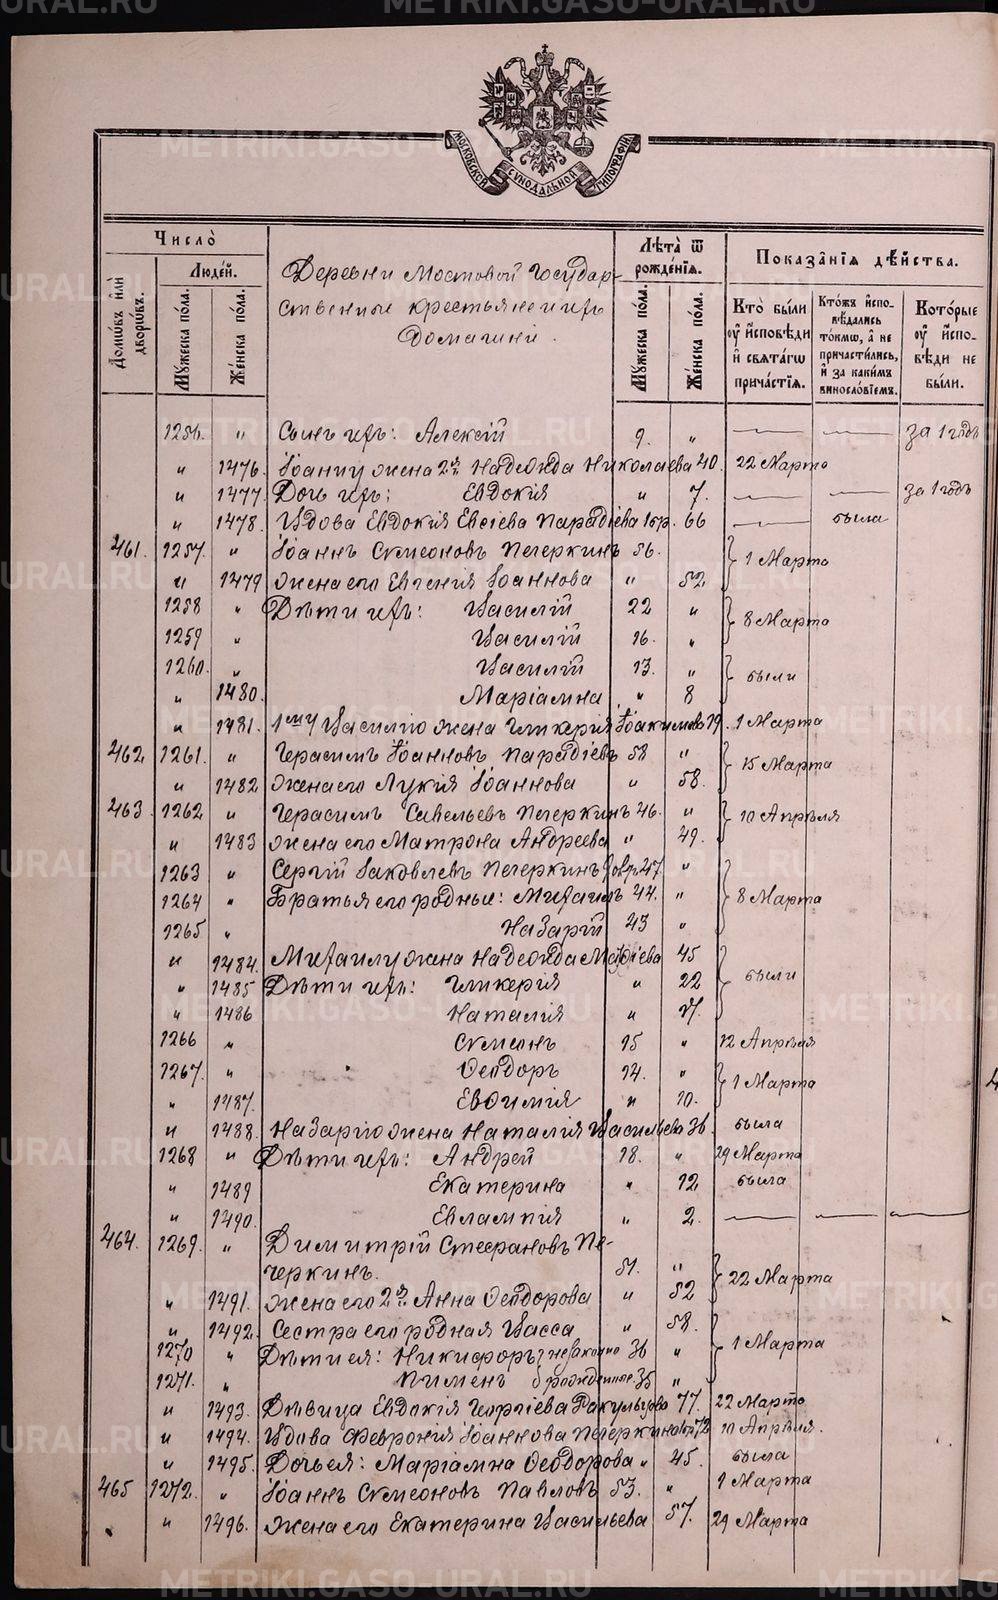 METRIKI.GASO-URAL.RU
МОСКОВСКОЙ СѴНОДАЛЬНОЙ ТИПОГРАФІИ
Число̀
Домѡ́въ и҆лѝ дворѡ́въ.
Люде́й.
Мꙋ́жеска по́ла.
Же́нска по́ла.
Деревни Мостовой Государ-
ственные крестьяне и ихъ
домашніе.
Лѣ́та ѿ рожде́нїѧ.
Мꙋ́жеска по́ла.
Же́нска по́ла.
Показа̑нїѧ дѣ́йства.
Кто̀ бы́ли оу҆ и҆сповѣ́ди и҆ свѧта́гѡ прича́стїѧ.
Кто́жъ и҆спо- вѣ́дались то́кмѡ, а҆ не причасти́лись, и҆ за каки́мъ винослові́емъ.
Кото́рые оу҆ и҆спо- вѣ́ди не бы́ли.
1256. " Сынъ ихъ: Алексій 9. " — — за 1 годъ
" 1476. Іоанну жена 2я Надежда Николаева 40. 22 Марта
" 1477. Дочь ихъ: Евдокія " 7. — — за 1 годъ
" 1478. Вдова Евдокія Евсіева Парадіева 1бр. 66 — была
461. 1257. " Іоаннъ Сѵмеоновъ Печеркинъ 56. } 1 Марта
" 1479 Жена его Евгенія Іоаннова " 52.
1258 " Дѣти ихъ: Василій 22 " } 8 Марта
1259 " Василій 16. "
1260. " Василій 13. " } были
" 1480. Маріамна " 8
" 1481. 1му Василію жена Гликерія Іоакимова 19. 1 Марта
462 1261. " Герасимъ Іоанновъ Парадіевъ 58 " } 15 Марта
" 1482 Жена его Лукія Іоаннова " 58.
463. 1262 " Герасимъ Савельевъ Печеркинъ 46. " } 10 Апрѣля
" 1483 Жена его Матрона Андреева " 49.
1263 " Сергій Іаковлевъ Печеркинъ 47. " } 8 Марта
1264 " Братья его родные: Михаилъ 44. "
1265 " Назарій 43 "
" 1484. Михаилу жена Надежда 45 } были
" 1485 Дѣти ихъ: Гликерія " 22
" 1486 Наталія "
1266 " Сѵмеонъ 15 " 12 Апрѣля
1267. " Ѳеодоръ 14. " } 1 Марта
" 1487. Евѳимія " 10.
" 1488. Назарію жена Наталія Васильева 36. была
1268 " Дѣти ихъ: Андрей 18. " 29 Марта
" 1489 Екатерина " 12 была
" 1490. Евлампія " 2. — — —
464. 1269. " Димитрій Стефановъ Пе-
черкинъ. 51. " } 22 Марта
" 1491. Жена его 2я Анна Ѳеодорова " 52
" 1492. Сестра его родная Васса " 58. } 1 Марта
1270 " Дѣти ея: Никифоръ } незаконно 36 "
1271. " Пименъ } рожденные. 35 "
" 1493. Дѣвица Евдокія Георгіева 77. 22 Марта
" 1494. Вдова Феѵронія Іоаннова Печеркина 72 10 Апрѣля.
" 1495. Дочь ея: Маріамна Ѳеодорова " 45. была
465 1272. " Іоаннъ Сѵмеоновъ Павловъ 53. " 1 Марта
" 1496. Жена его Екатерина Васильева 57. 29 Марта